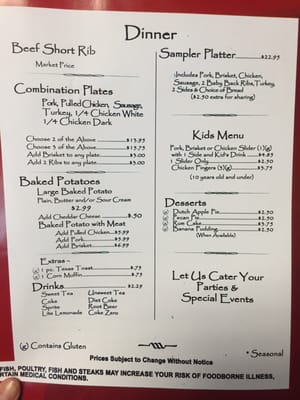 Dinner
Beef Short Rib
Market Price
Combination Plates
Pork, Pulled Chicken, Sausage,
Turkey, 1/4 Chicken White
1/4 Chicken Dark
Choose 2 of the Above $13.95
Choose 3 of the Above $15.75
Add Brisket to any plate $3.00
Add 2 Ribs to any plate $5.00
Baked Potatoes
Large Baked Potato
Plain, Butter and/or Sour Cream
$2.99
Add Cheddar Cheese $.50
Baked Potato with Meat
Add Pulled Chicken $5.99
Add Pork $5.99
Add Brisket $6.99
Extras -
(g) 1 pc. Texas Toast $.75
(g) 1 Corn Muffin $.75
Drinks $2.29
Sweet Tea Unsweet Tea
Coke Diet Coke
Sprite Root Beer
Lite Lemonade Coke Zero
(g) Contains Gluten
Sampler Platter $22.95
Includes Pork, Brisket, Chicken,
Sausage, 2 Baby Back Ribs, Turkey,
2 Sides & Choice of Bread
($2.50 extra for sharing)
Kids Menu
Pork, Brisket or Chicken Slider (1)(g)
with 1 Side and Kids Drink $4.85
1 Slider Only $2.50
Chicken Fingers (3)(g) $5.75
(10 years old and under)
Desserts
(g) Dutch Apple Pie $2.50
(g) Pecan Pie $2.50
(g) Rum Cake $3.75
(g) Banana Pudding $2.50
(When Available)
Let Us Cater Your
Parties &
Special Events
* Seasonal
Prices Subject to Change Without Notice
FISH, POULTRY, FISH AND STEAKS MAY INCREASE YOUR RISK OF FOODBORNE ILLNESS,
CERTAIN MEDICAL CONDITIONS.